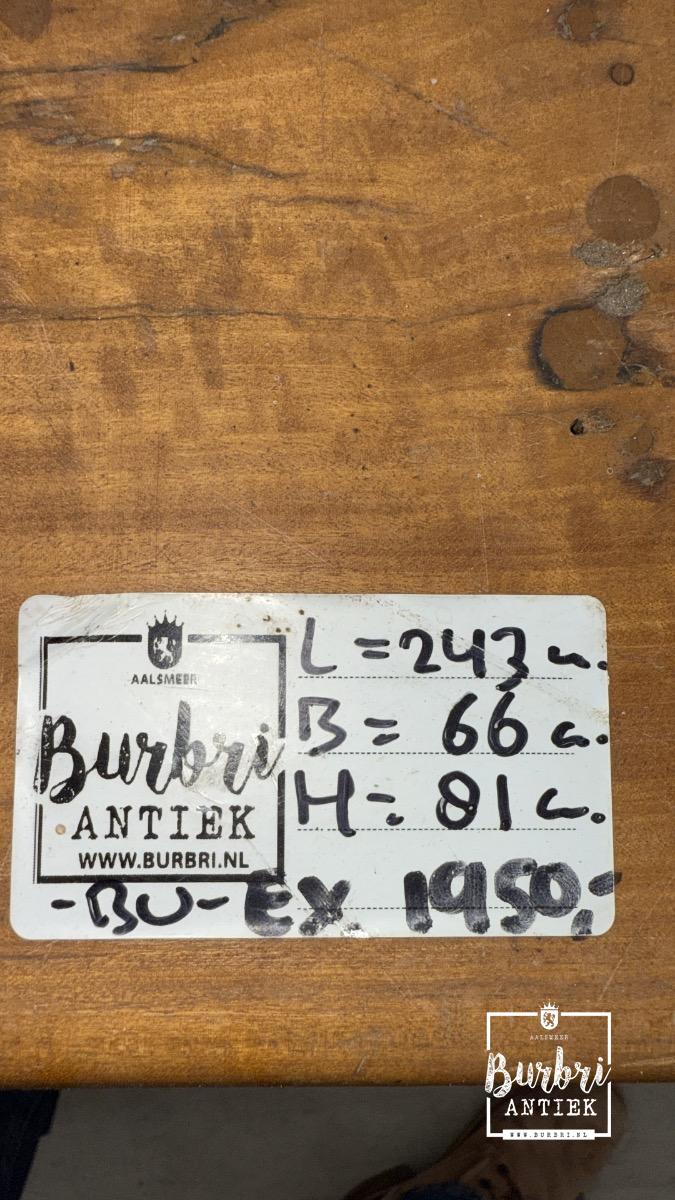 AALSMEER
Burbri
ANTIEK
WWW.BURBRI.NL
L = 243 c.
B = 66 c.
H = 81 c.
-BU- Ex 1950,-
AALSMEER
Burbri
ANTIEK
WWW.BURBRI.NL